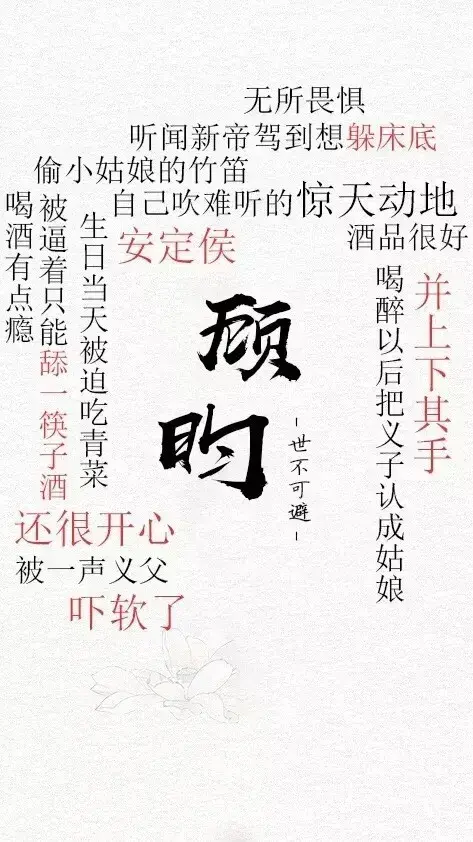 无所畏惧
听闻新帝驾到想躲床底
偷小姑娘的竹笛
自己吹难听的惊天动地
酒品很好
喝醉以后把义子认成姑娘
并上下其手
安定侯
顾昀
-世不可避-
生日当天被迫吃青菜
喝酒有点瘾
被逼着只能舔一筷子酒
还很开心
被一声义父
吓软了